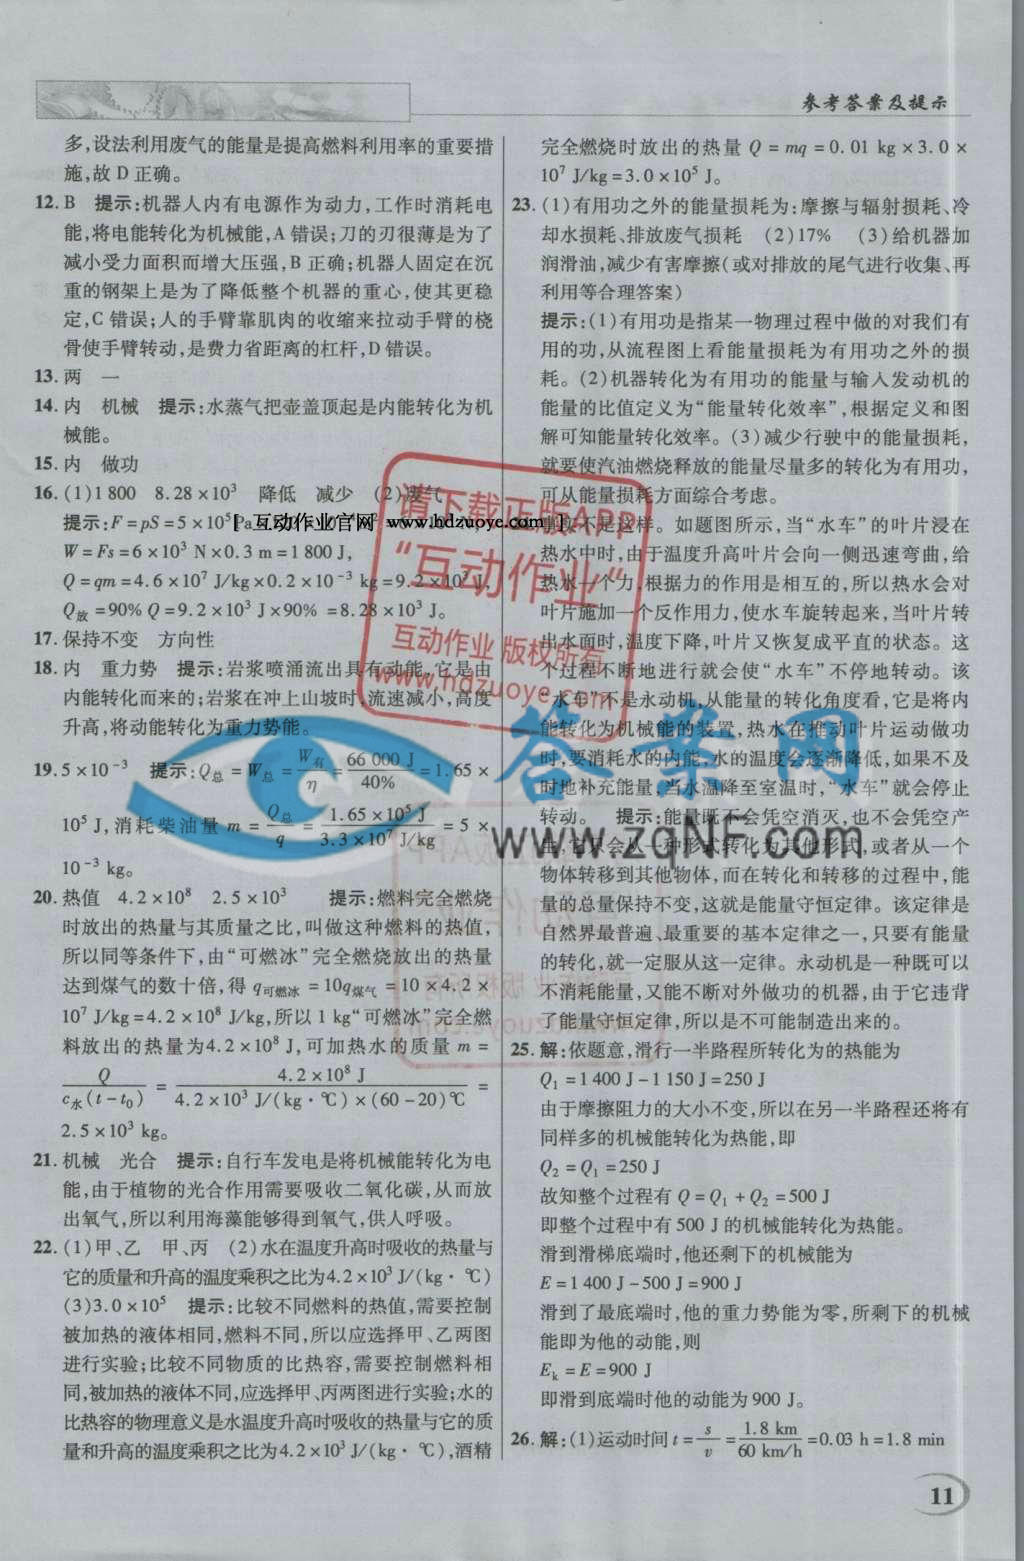 参考答案及提示
多,设法利用废气的能量是提高燃料利用率的重要措
施,故 D 正确。
12. B 提示:机器人内有电源作为动力,工作时消耗电
能,将电能转化为机械能,A 错误;刀的刃很薄是为了
减小受力面积而增大压强,B 正确;机器人固定在沉
重的钢架上是为了降低整个机器的重心,使其更稳
定,C 错误;人的手臂靠肌肉的收缩来拉动手臂的桡
骨使手臂转动,是费力省距离的杠杆,D 错误。
13. 两 一
14. 内 机械 提示:水蒸气把壶盖顶起是内能转化为机
械能。
15. 内 做功
16. (1)1 800 8.28×10³ 降低 减少 (2)废气
提示:F=pS=5×10⁵Pa
W=Fs=6×10³ N×0.3 m=1 800 J,
Q=qm=4.6×10⁷ J/kg×0.2×10⁻³ kg=9.2×10³ J,
Q放=90%Q=9.2×10³ J×90%=8.28×10³ J。
17. 保持不变 方向性
18. 内 重力势 提示:岩浆喷涌流出具有动能,它是由
内能转化而来的;岩浆在冲上山坡时,流速减小,高度
升高,将动能转化为重力势能。
19. 5×10⁻³ 提示:Q总=W总=W有/η=66 000 J/40%=1.65×
10⁵ J,消耗柴油量 m=Q总/q=1.65×10⁵ J/3.3×10⁷ J/kg=5×
10⁻³ kg。
20. 热值 4.2×10⁸ 2.5×10³ 提示:燃料完全燃烧
时放出的热量与其质量之比,叫做这种燃料的热值,
所以同等条件下,由“可燃冰”完全燃烧放出的热量
达到煤气的数十倍,得 q可燃冰=10q煤气=10×4.2×
10⁷ J/kg=4.2×10⁸ J/kg,所以 1 kg“可燃冰”完全燃
料放出的热量为4.2×10⁸ J,可加热水的质量 m=
Q/c水(t-t₀)=4.2×10⁸ J/4.2×10³ J/(kg·℃)×(60-20)℃=
2.5×10³ kg。
21. 机械 光合 提示:自行车发电是将机械能转化为电
能,由于植物的光合作用需要吸收二氧化碳,从而放
出氧气,所以利用海藻能够得到氧气,供人呼吸。
22. (1)甲、乙 甲、丙 (2)水在温度升高时吸收的热量与
它的质量和升高的温度乘积之比为4.2×10³ J/(kg·℃)
(3)3.0×10⁵ 提示:比较不同燃料的热值,需要控制
被加热的液体相同,燃料不同,所以应选择甲、乙两图
进行实验;比较不同物质的比热容,需要控制燃料相
同,被加热的液体不同,应选择甲、丙两图进行实验;水的
比热容的物理意义是水温度升高时吸收的热量与它的质
量和升高的温度乘积之比为4.2×10³ J/(kg·℃),酒精
完全燃烧时放出的热量 Q=mq=0.01 kg×3.0×
10⁷ J/kg=3.0×10⁵ J。
23. (1)有用功之外的能量损耗为:摩擦与辐射损耗、冷
却水损耗、排放废气损耗 (2)17% (3)给机器加
润滑油,减少有害摩擦(或对排放的尾气进行收集、再
利用等合理答案)
提示:(1)有用功是指某一物理过程中做的对我们有
用的功,从流程图上看能量损耗为有用功之外的损
耗。(2)机器转化为有用功的能量与输入发动机的
能量的比值定义为“能量转化效率”,根据定义和图
解可知能量转化效率。(3)减少行驶中的能量损耗,
就要使汽油燃烧释放的能量尽量多的转化为有用功,
可从能量损耗方面综合考虑。
不是这样。如题图所示,当“水车”的叶片浸在
热水中时,由于温度升高叶片会向一侧迅速弯曲,给
热水一个力,根据力的作用是相互的,所以热水会对
叶片施加一个反作用力,使水车旋转起来,当叶片转
出水面时,温度下降,叶片又恢复成平直的状态。这
个过程不断地进行就会使“水车”不停地转动。该
“水车”不是永动机,从能量的转化角度看,它是将内
能转化为机械能的装置,热水在推动叶片运动做功
时,要消耗水的内能,水的温度会逐渐降低,如果不及
时地补充能量,当水温降至室温时,“水车”就会停止
转动。 提示:能量既不会凭空消灭,也不会凭空产
生,它只会从一种形式转化为其他形式,或者从一个
物体转移到其他物体,而在转化和转移的过程中,能
量的总量保持不变,这就是能量守恒定律。该定律是
自然界最普遍、最重要的基本定律之一,只要有能量
的转化,就一定服从这一定律。永动机是一种既可以
不消耗能量,又能不断对外做功的机器,由于它违背
了能量守恒定律,所以是不可能制造出来的。
25. 解:依题意,滑行一半路程所转化为的热能为
Q₁=1 400 J-1 150 J=250 J
由于摩擦阻力的大小不变,所以在另一半路程还将有
同样多的机械能转化为热能,即
Q₂=Q₁=250 J
故知整个过程有 Q=Q₁+Q₂=500 J
即整个过程中有 500 J 的机械能转化为热能。
滑到滑梯底端时,他还剩下的机械能为
E=1 400 J-500 J=900 J
滑到了最底端时,他的重力势能为零,所剩下的机械
能即为他的动能,则
Eₖ=E=900 J
即滑到底端时他的动能为 900 J。
26. 解:(1)运动时间 t=s/v=1.8 km/60 km/h=0.03 h=1.8 min
11
[ 互动作业官网 www.hdzuoye.com ]
请下载正版APP
“互动作业”
互动作业 版权所有
www.hdzuoye.com
答案网
www.zqNF.com